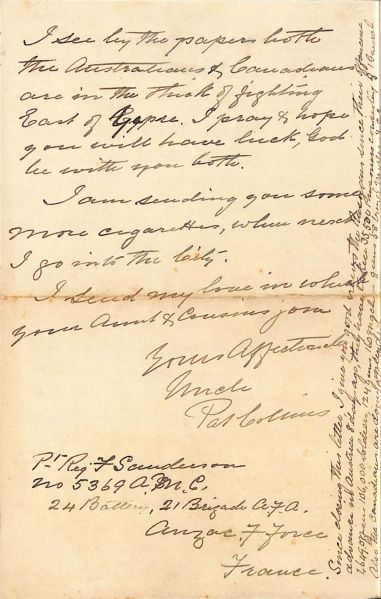 I see by the papers both
the Australians & Canadians
are in the thick of fighting
East of Ypse. I pray & hope
you will have luck, God
be with you both.
I am sending you some
more cigarettes, when next
I go into the City.
I send my love in which
your Aunt & Cousins join
Yours Affectionate
Uncle
Pat Collins
Pt Reg. F Sanderson
No 5369 A.M.C.
24 Battery, 21 Brigade A.F.A.
Anzac F Force
France
Since closing this letter, I give you good news the
advance in 8 days ago, they have taken 35,500 Prisoners consisting of 1 General
Also the Canadians are doing